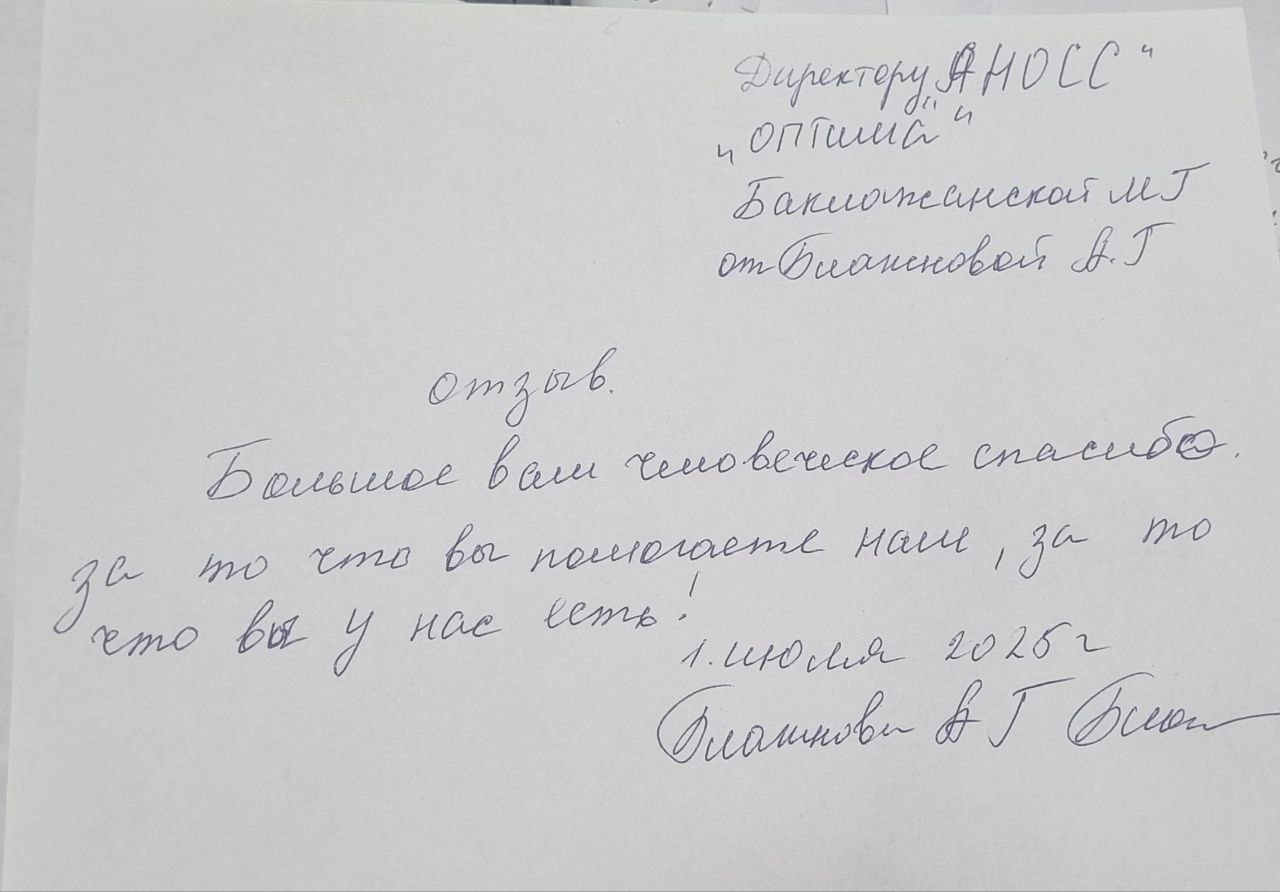 Директору АНОСС"
„ОПТима"
Баклажанской МГ
от Блажновой А.Г
отзыв.
Большое вам человеческое спасибо.
за то что вы помогаете нам, за то
что вы у нас есть!
1. июля 2025 г
Блажнова А Г